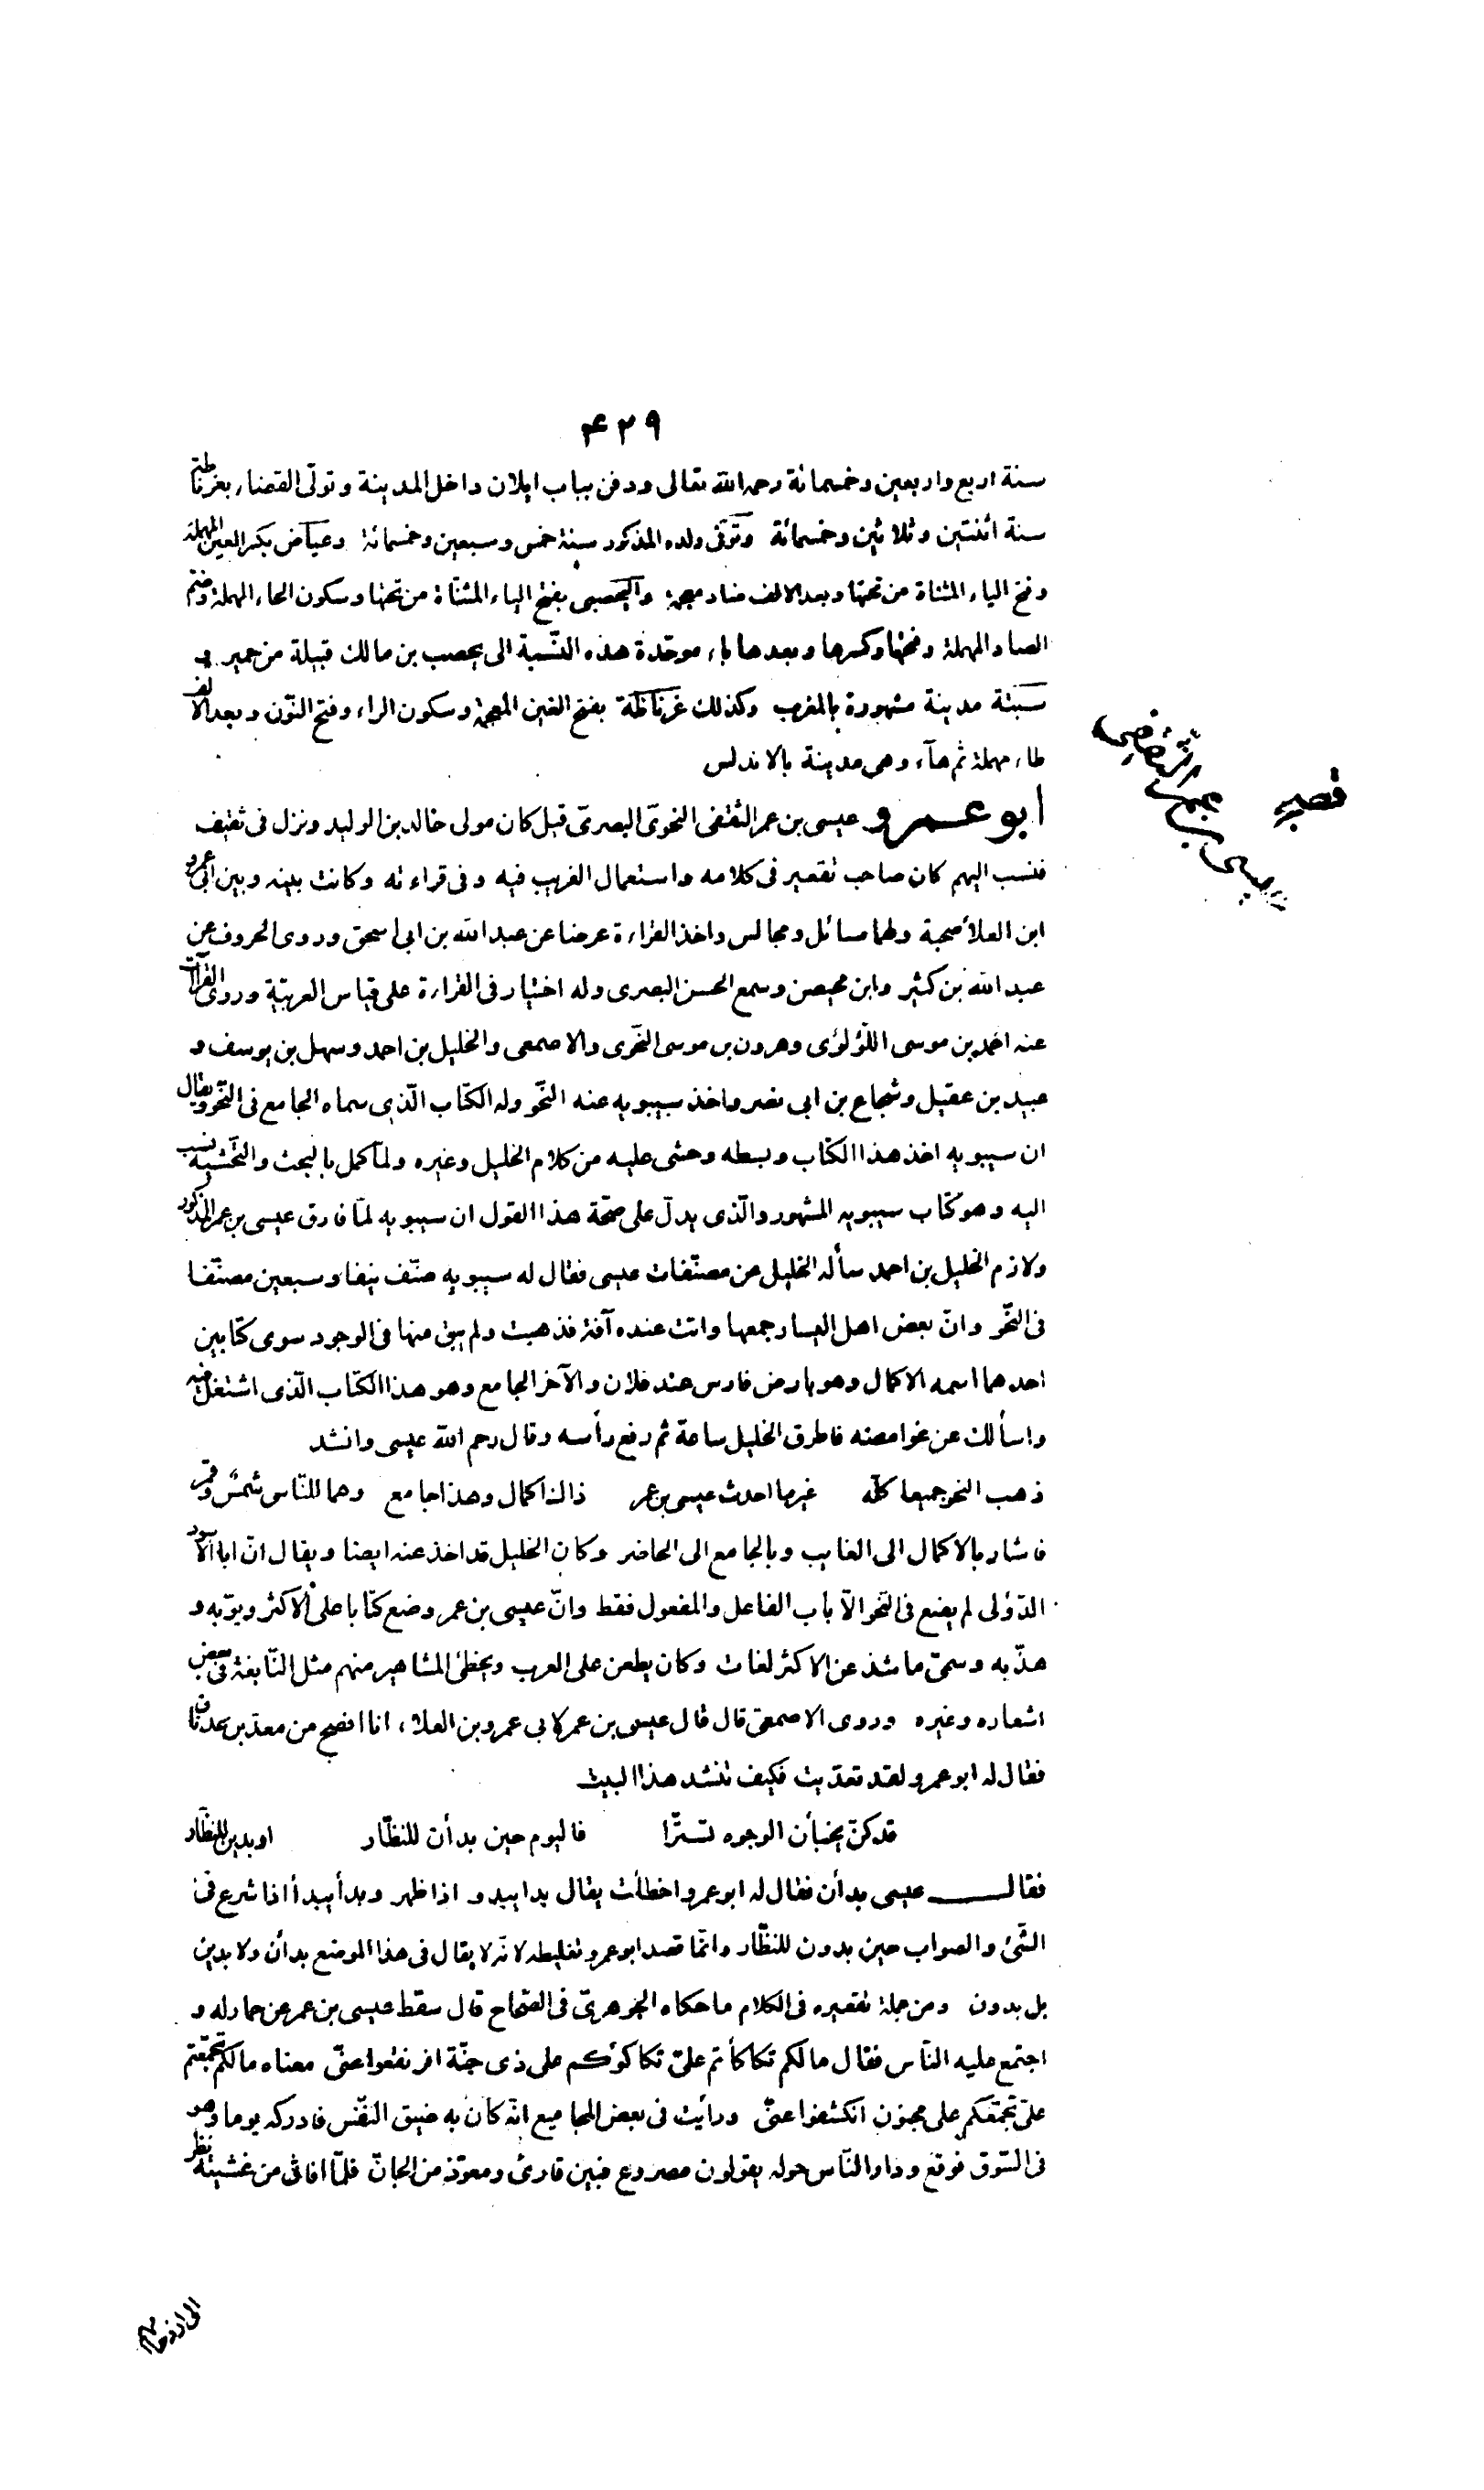 ۴۲۹
سنة اربع واربعين وخمسمائة رحمه الله تعالى ودفن بباب ايلان داخل المدينة وتولّى القضاء بغرناطة
سنة اثنتين وثلاثين وخمسمائة وتوفّى ولده المذكور سنة خمس وسبعين وخمسمائة وعياض بكسر العين المهملة
وفتح الياء المثناة من تحتها وبعد الالف ضاد معجمة واليحصبى بفتح الياء المثنّاة من تحتها وسكون الحاء المهملة وضم
الصاد المهملة وفتحها وكسرها وبعدها باء موحّدة هذه النّسبة الى يحصب بن مالك قبيلة من حمير و
سَبتة مدينة مشهورة بالمغرب وكذلك غَرناطة بفتح الغين المعجمة وسكون الراء وفتح النّون وبعد الالف
طاء مهملة ثم هآء وهى مدينة بالاندلس
ابو عمرو عيسى بن عمر الثقفى النحوىّ البصرىّ قيل كان مولى خالد بن الوليد ونزل فى ثقيف
فنسب اليهم كان صاحب تقعير فى كلامه واستعمال الغريب فيه وفى قراءته وكانت بينه وبين ابى عمرو
ابن العلأ صحبة ولهما مسائل ومجالس واخذ القراءة عرضا عن عبد الله بن ابى اسحق وروى الحروف عن
عبد الله بن كثير وابن محيصن وسمع الحسن البصرى وله اختيار فى القراءة على قياس العربيّة وروى القرآت
عنه احمد بن موسى اللؤلؤى وهرون بن موسى النحوى والاصمعى والخليل بن احمد وسهل بن يوسف و
عبيد بن عقيل وشجاع بن ابى نصر واخذ سيبويه عنه النّحو وله الكتاب الّذى سماه الجامع فى النّحو ويقال
ان سيبويه اخذ هذا الكتاب وبسطه وحشى عليه من كلام الخليل وغيره ولمّا كمل بالبحث والتّحشية نسب
اليه وهو كتاب سيبويه المشهور والّذى يدلّ على صحّة هذا القول ان سيبويه لمّا فارق عيسى بن عمر المذكور
ولازم الخليل بن احمد سأله الخليل عن مصنّفات عيسى فقال له سيبويه صنّف نيفا وسبعين مصنّفا
فى النّحو وانّ بعض اهل اليسار جمعها واتت عنده آفة فذهبت ولم يبق منها فى الوجود سوى كتابين
احدهما اسمه الاكمال وهو بارض فارس عند فلان والآخر الجامع وهو هذا الكتاب الّذى اشتغل فيه
واسألك عن غوامضه فاطرق الخليل ساعة ثم رفع رأسه وقال رحم الله عيسى وانشد
ذهب النحو جميعا كلّه غير ما احدث عيسى بن عمر ذاك اكمال وهذا جامع وهما للنّاس شمسٌ وقمر
فاشار بالاكمال الى الغايب وبالجامع الى الحاضر وكان الخليل قد اخذ عنه ايضا ويقال انّ ابا الاسود
الدّؤلى لم يضع فى النّحو الّا باب الفاعل والمفعول فقط وانّ عيسى بن عمر وضع كتابا على الاكثر وبوّبه و
هذّبه وسمّى ما شذ عن الاكثر لغات وكان يطعن على العرب ويخطئ المشاهير منهم مثل النّابغة فى بعض
اشعاره وغيره وروى الاصمعى قال قال عيسى بن عمر لابى عمرو بن العلاء انا افصح من معدّ بن عدنان
فقال له ابو عمرو لقد تعدّيت فكيف تنشد هذا البيت
قد كنّ يخبأن الوجوه تستّرا فاليوم حين بدأن للنظّار او بدين للنظّار
فقال عيسى بدأن فقال له ابو عمرو اخطأت يقال بدا يبدو اذا ظهر وبدأ يبدأ اذا شرع فى
الشّئ والصواب حين بدون للنظّار وانّما قصد ابو عمرو تغليطه لانّه لا يقال فى هذا الموضع بدأن ولا بدين
بل بدون ومن جملة تقعيره فى الكلام ما حكاه الجوهرىّ فى الصّحاح قال سقط عيسى بن عمر عن حمار له و
اجتمع عليه النّاس فقال مالكم تكأكأتم علىّ تكأكؤكم على ذى جنّة افرنقعوا عنّى معناه مالكم تجمّعتم
علىّ تجمّعكم على مجنون انكشفوا عنّى ورأيت فى بعض المجاميع انّه كان به ضيق النّفس فادركه يوما وهو
فى السّوق فوقع ودار النّاس حوله يقولون مصروع فبين قارئ ومعوّذ من الجانّ فلمّا افاق من غشيته نظر
الى ازدحام